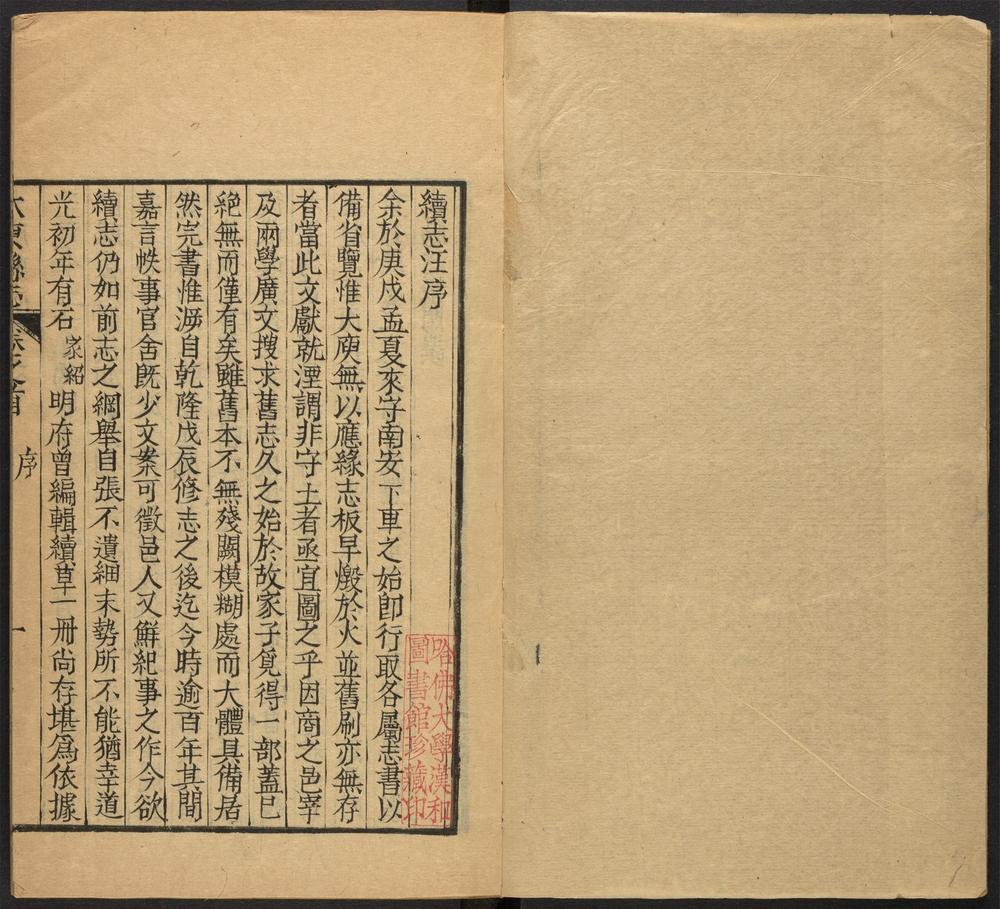 續志汪序
余於庚戌孟夏來守南安下車之始卽行取各屬志書以
備省覽惟大庾無以應緣志板早燬於火並舊刷亦無存
者當此文獻就湮謂非守土者亟宜圖之乎因商之邑宰
及兩學廣文搜求舊志久之始於故家子覓得一部蓋已
絕無而僅有矣雖舊本不無殘闕模糊處而大體具備居
然完書惟溯自乾隆戊辰修志之後迄今時逾百年其間
嘉言軼事官舍旣少文案可徵邑人又鮮紀事之作今欲
續志仍如前志之綱舉自張不遺細末勢所不能猶幸道
光初年有石家紹明府曾編輯續草一冊尚存堪爲依據
大庾縣志 卷之首 序 一
哈佛大學漢和
圖書館珍藏印